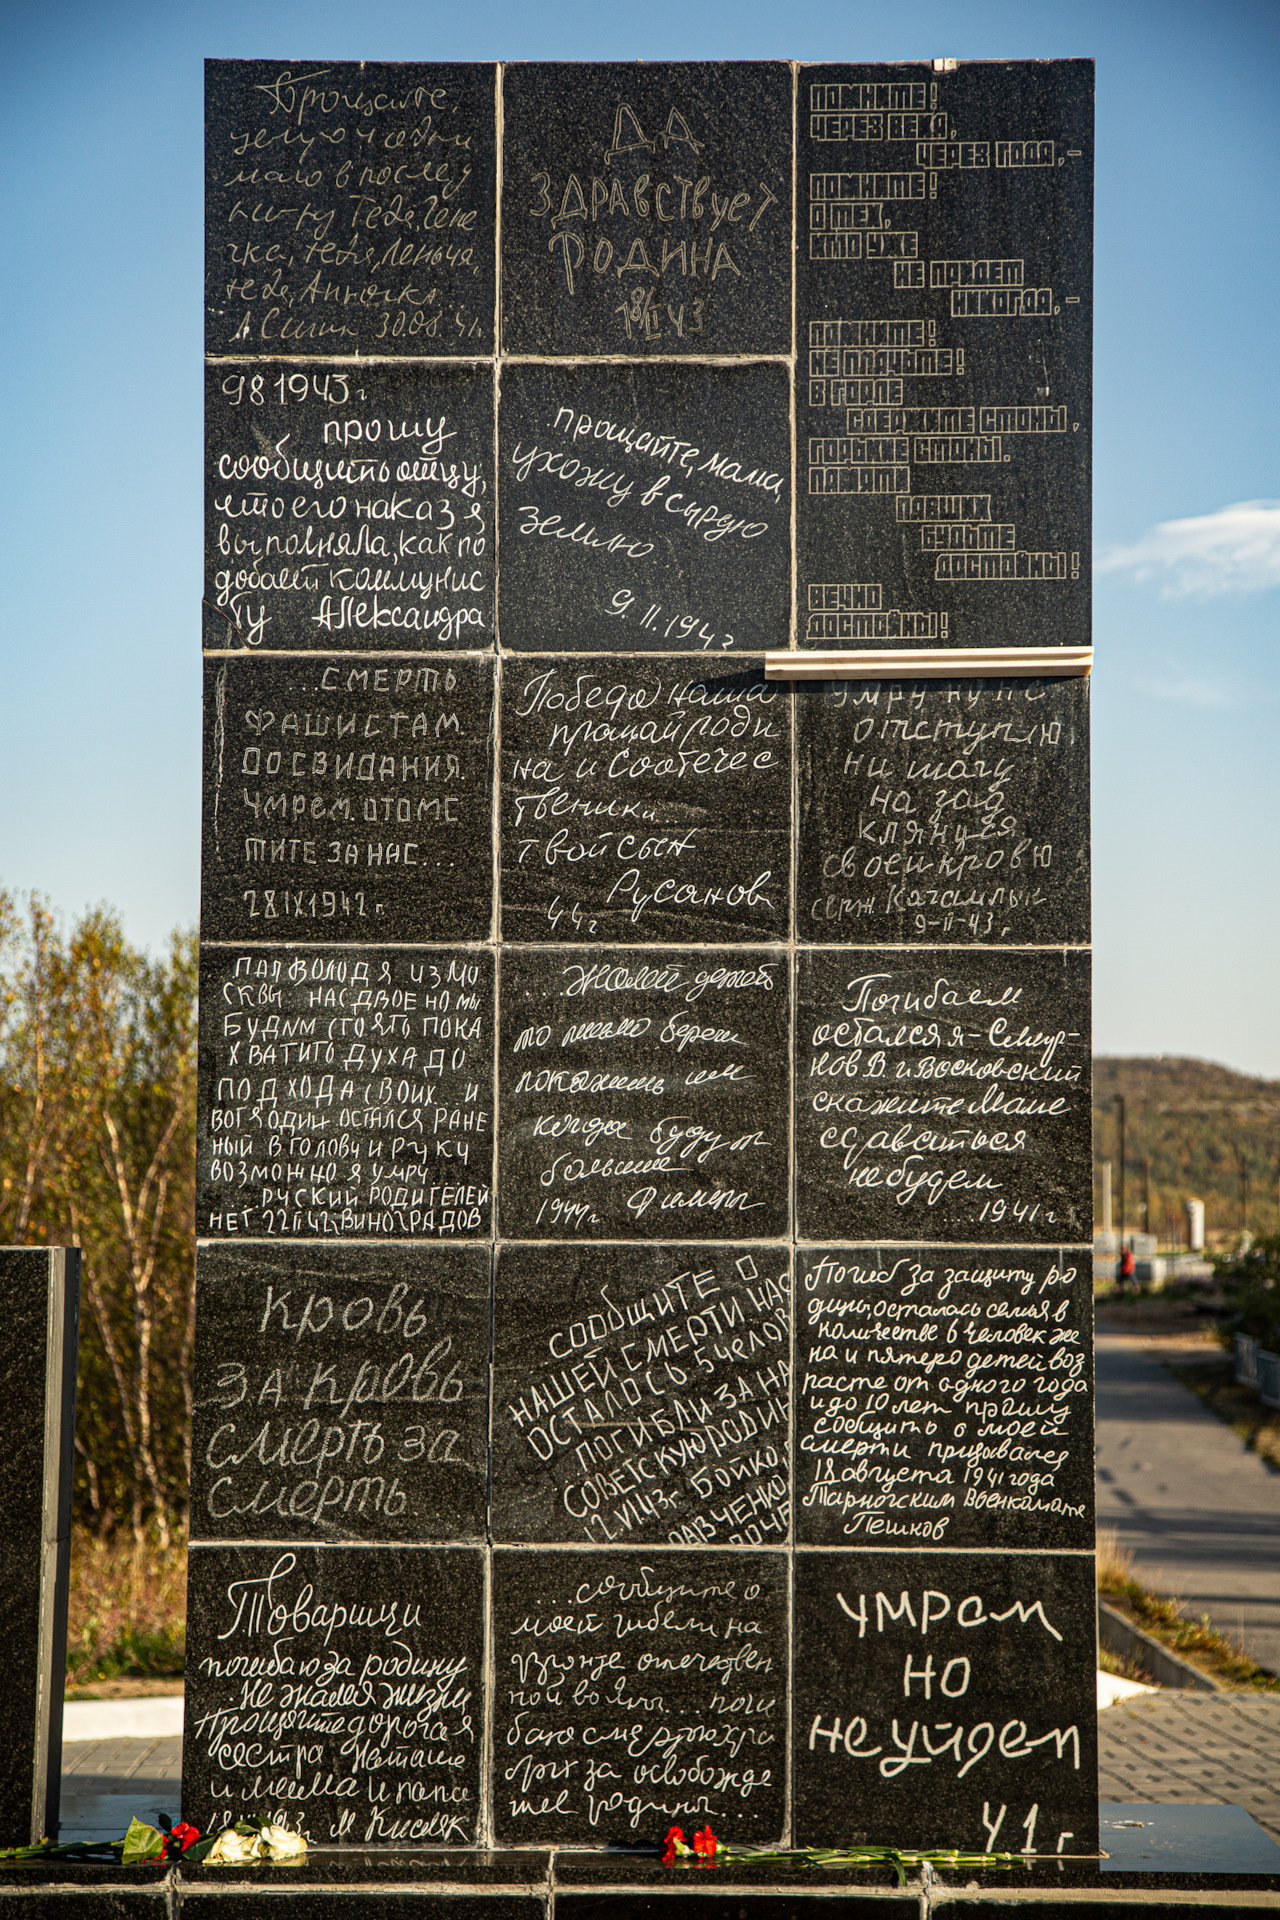 Прощайте,
целую и обни
маю в послед
тебя, Лёнечка,
А. Синин 30.08.41г
ДА
ЗДРАВСТВУЕТ
РОДИНА
18/II 43
ПОМНИТЕ!
ЧЕРЕЗ ВЕКА,
ЧЕРЕЗ ГОДА,-
ПОМНИТЕ!
О ТЕХ,
КТО УЖЕ
НЕ ПРИДЕТ
НИКОГДА,-
ПОМНИТЕ!
НЕ ПЛАЧЬТЕ!
В ГОРЛЕ
СДЕРЖИТЕ СТОНЫ,
ГОРЬКИЕ СТОНЫ.
ПАМЯТИ
ПАВШИХ
БУДЬТЕ
ДОСТОЙНЫ!
ВЕЧНО
ДОСТОЙНЫ!
9 8 1943 г
прошу
сообщить отцу,
что его наказ я
выполняла, как по
добает коммунис
ту Александра
прощайте, мама,
ухожу в сырую
землю
9. II. 194 г
...СМЕРТЬ
ФАШИСТАМ.
ДОСВИДАНИЯ.
УМРЕМ. ОТОМС
ТИТЕ ЗА НАС...
28 IX 1942 г.
Победа наша
прощай роди
на и Соотечес
твеники...
твой сын
Русанов
44 г
умру ну не
отступлю
ни шагу
на зад
клянуся
своей кровю
серж.
9-II-43 г
ПАЛ ВОЛОДЯ ИЗ МО
СКВЫ НАС ДВОЕ НО МЫ
БУДИМ СТОЯТЬ ПОКА
ХВАТИТЬ ДУХА ДО
ПОДХОДА СВОИХ... И
ВОТ Я ОДИН ОСТАЛСЯ РАНЕ
НЫЙ В ГОЛОВУ И РУКУ
ВОЗМОЖНО Я УМРУ
... РУСКИЙ РОДИТЕЛЕЙ
НЕТ 22 II 42 г ВИНОГРАДОВ
...Жалей детей
то писмо береги
покажишь им
когда будут
больше
1944 г
Погибаем
остался я - Смир-
нов В. и Восковский
скажите Маше
сдаваться
не будем
....1941 г
Кровь
за кровь
смерть за
смерть
.СООБЩИТЕ О
НАШЕЙ СМЕРТИ НАС
ОСТАЛОСЬ 5 ЧЕЛОВ
ПОГИБЛИ ЗА НА
СОВЕТСКУЮ РОДИН
12.VII 43 г. БОЙКО,
РАВЧЕНКО
ПОЧЕ
Погиб за защиту ро
дины, осталась семья в
количестве 6 человек же
на и пятеро детей воз
расте от одного года
и до 10 лет прошу
сообщить о моей
смерти призывался
18 августа 1941 года
Тарногским Военкомате
Пешков
Товарищи
погибаю за родину
.Не жалея жизни
Прощайте дорогая
сестра Наташа
и мама и папа
М Кисляк
...сообщите о
моей гибели на
фронте отечествен
ной войны... поги
баю смертю хра
брых за освобожде
ние родины...
УМРЕМ
НО
НЕ УЙДЕМ
41 г